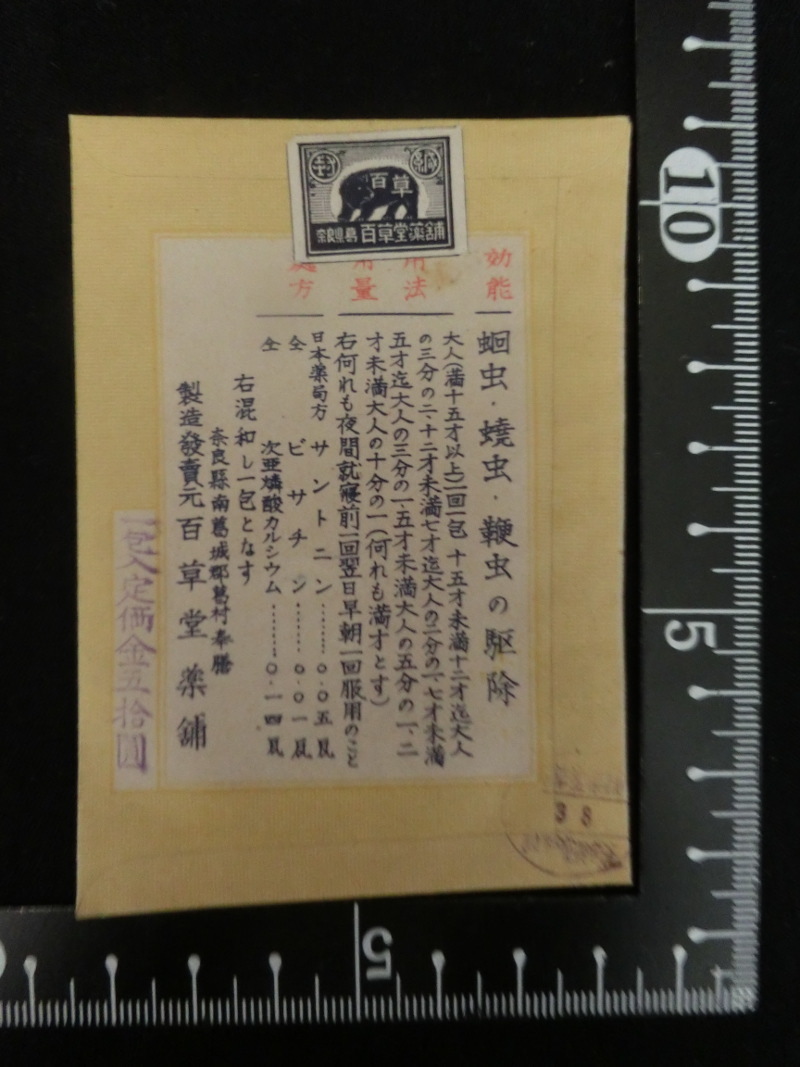 封
緘
百草
奈良縣葛 百草堂薬舗
効能
蛔虫・蟯虫・鞭虫の駆除
用法
用量
大人(満十五才以上)一回一包 十五才未満十二才迄大人
の三分の二、十二才未満七才迄大人の二分の一、七才未満
五才迄大人の三分の一、五才未満大人の五分の一、二
才未満大人の十分の一(何れも満才とす)
右何れも夜間就寝前一回翌日早朝一回服用のこと
處方
日本薬局方 サントニン………〇・〇五瓦
仝 ビサチン………〇・〇一瓦
仝 次亜燐酸カルシウム………〇・一四瓦
右混和し一包となす
奈良縣南葛城郡葛村奉膳
製造發賣元 百草堂薬舗
一包入定価金五拾圓
3 8
10
5
5